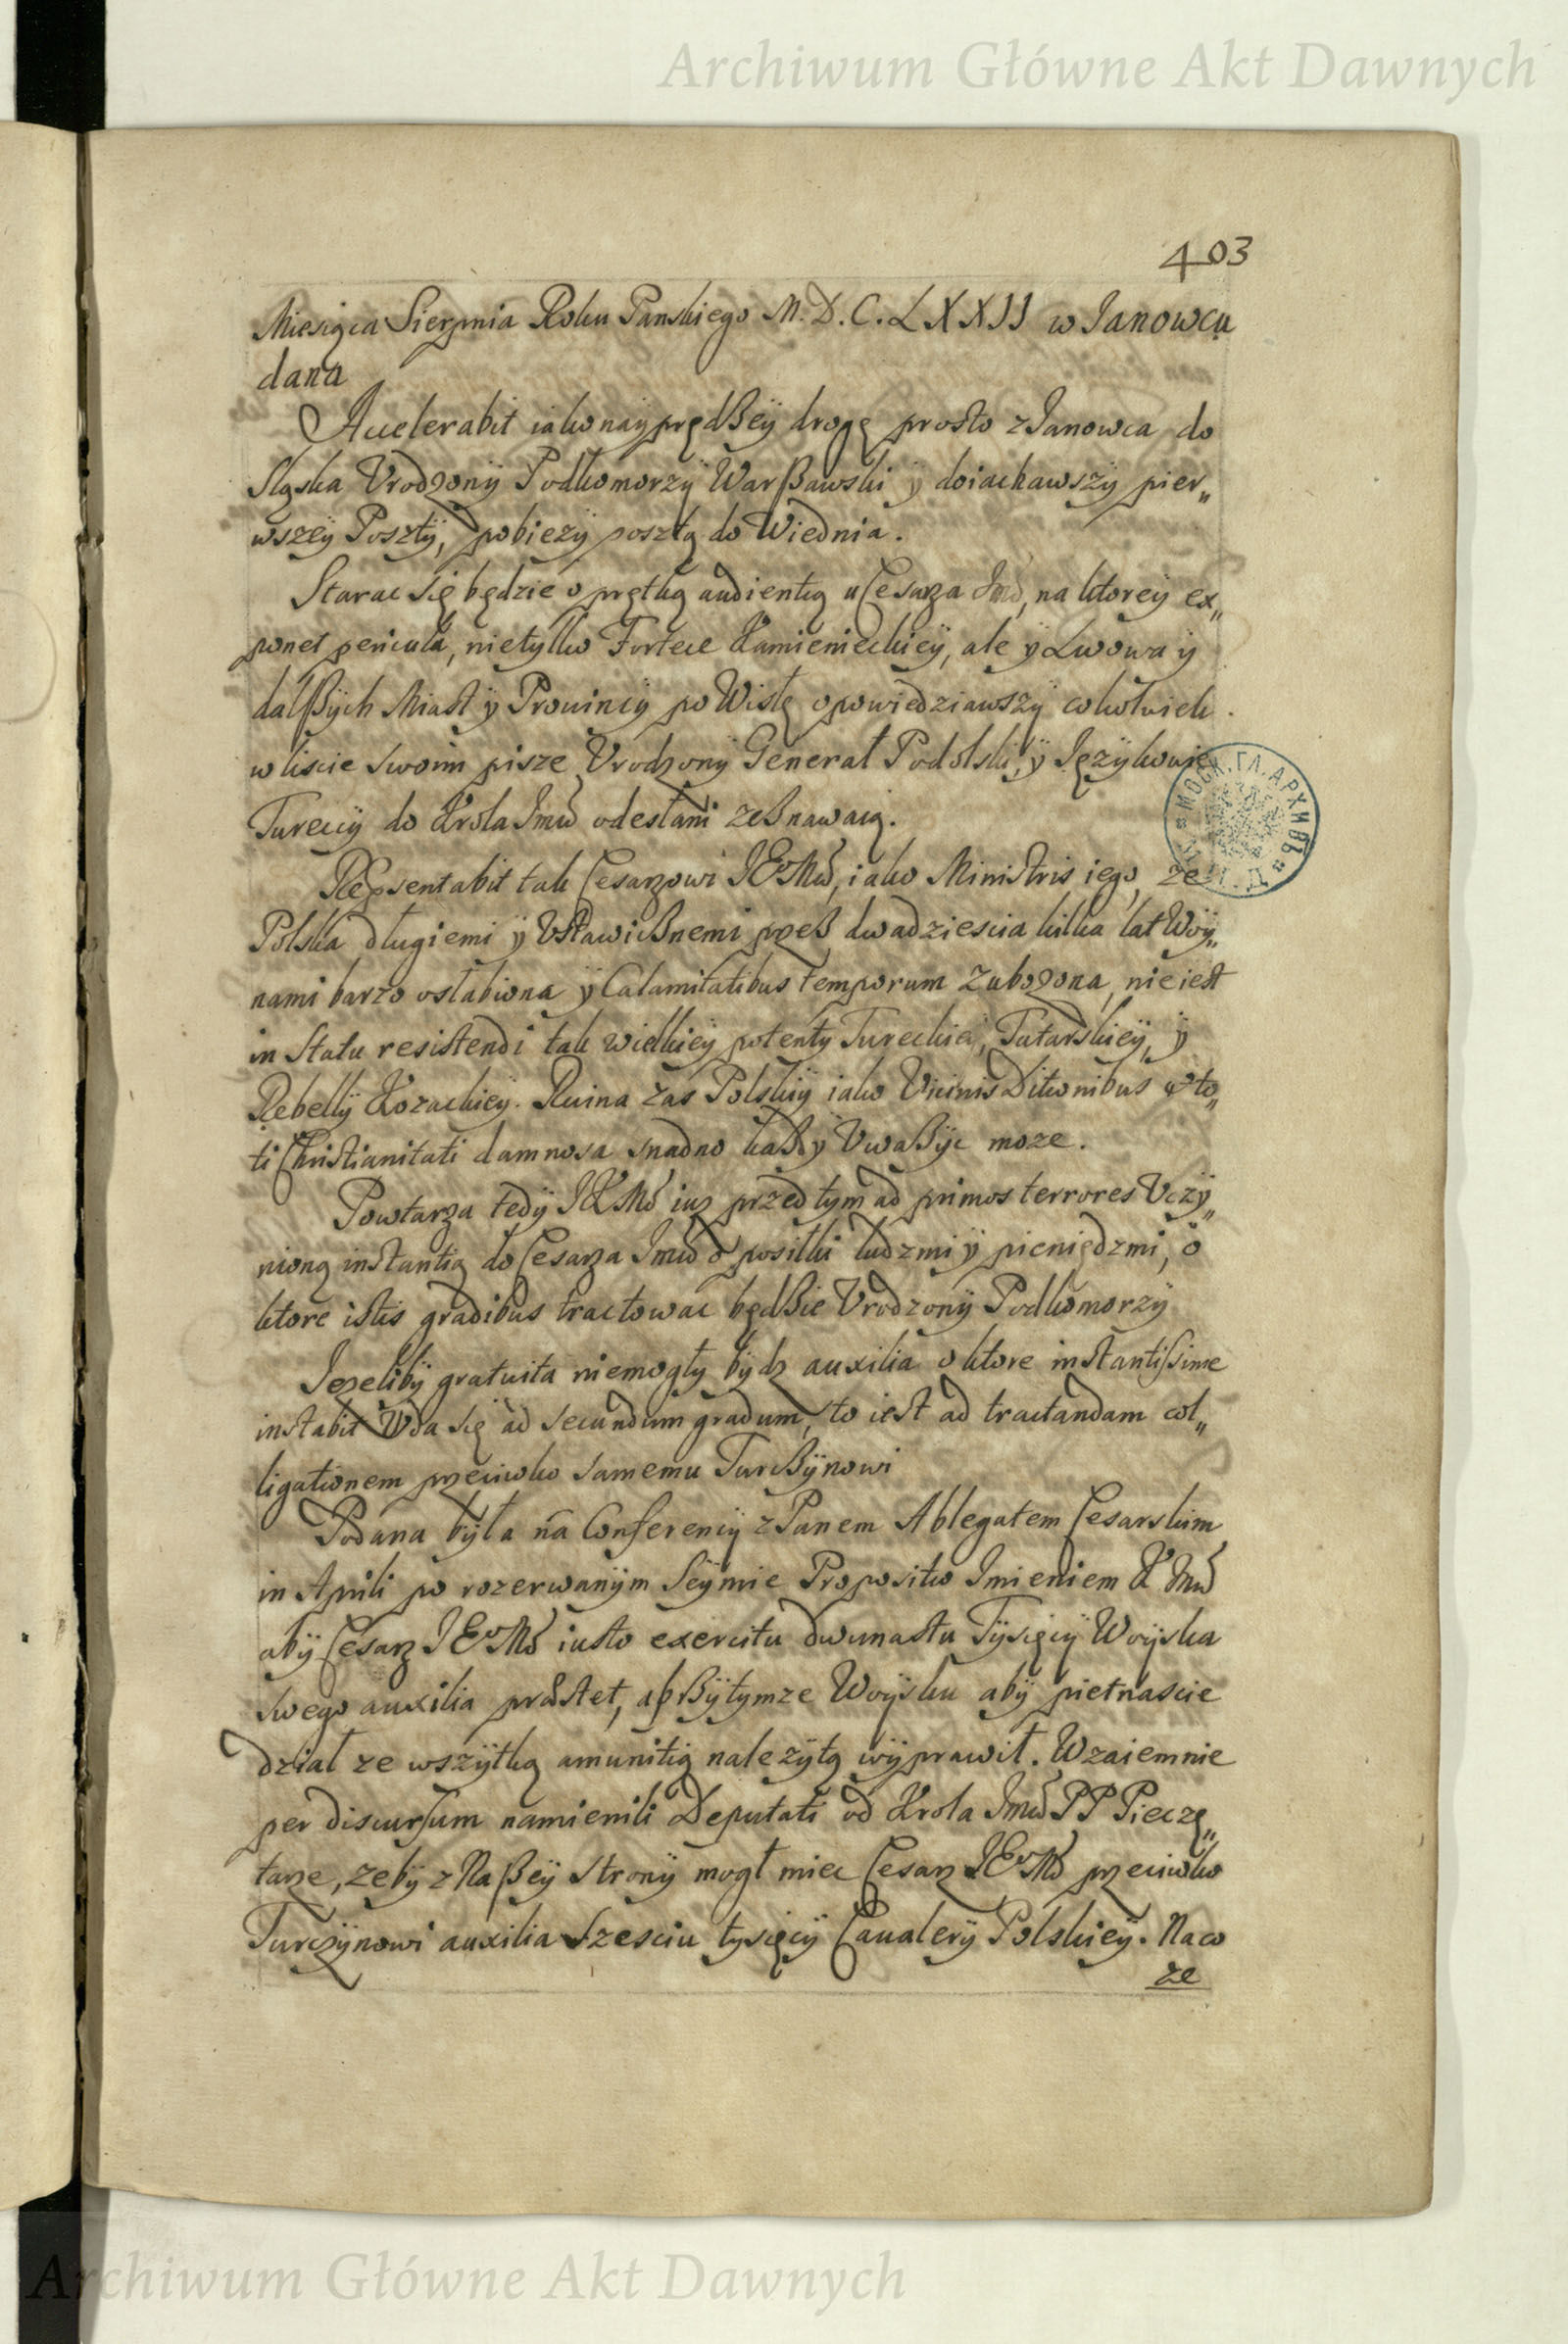 Archiwum Główne Akt Dawnych
403
Miesiąca Sierpnia Roku Panskiego M.D.C.LXXII w Janowcu
dana
Accelerabit iako nayprędßey drogę prosto z Janowca do
Sląska Vrodzony Podkomorzy Warßawski y doiachawszy pier„
wszey Poszty, pobieży posztą do Wiednia.
Starac się będzie o prętką audientią u Cesarza Jmć, na ktorey ex„
ponet pericula, nietylko Fortece Kamienieckiey, ale y Lwowa y
dalßych Miast y Prouincij po Wisłę opowiedziawszy cokolwiek
w liscie swoim pisze Vrodzony Generał Podolski, y Językowie
Tureccy do Krola Jmći odesłani zeßnawaią.
Repsentabit tak Cesarzowi JEoMći, iako Ministris iego, ze
Polska długiemi y Vstawicßnemi przeß dwadziescia kilka lat Woy„
nami barzo osłabiona y Calamitatibus temporum zubozona, nie iest
in statu resistendi tak wielkiey potenty Tureckiei, Tatarskiey, y
Rebelly Kozackiey. Ruina zas Polskiy iako Vicinis Ditionibus et to„
ti Christianitati damnosa snadno kaßdy Vwaßyc moze.
Powtarza tedy JKMć iuz przed tym ad primos terrores Vczy„
nioną instantią do Cesarza Jmći o posiłki ludzmi y pieniędzmi, o
ktore istis gradibus tractowac będßie Vrodzony Podkomorzy
Jezeliby gratuita niemogły bydz auxilia o ktore instantissime
instabit Vda się ad secundum gradum, to iest ad tractandam col„
ligationem przeciwko samemu Turcßynowi
Podana była na Conferencij z Panem Ablegatem Cesarskim
in Aprili po rozerwanym Seymie Propositio Jmieniem K Jmći
aby Cesarz JEoMć iusto exercitu dwunastu Tysięcy Woyska
swego auxilia præstet, a pßytymze Woysku aby pietnascie
dział ze wszytką amunitią nalezytą wyprawił. Wzaiemnie
per discursum namienili Deputati od Krola Jmći PP Pieczę„
tarze, zeby z Naßey strony mogł miec Cesarz JEoMć przeciwko
Turczynowi auxilia szesciu tysięcy Caualery Polskiey. Na co
ze
МОСК. ГЛ. АРХИВЪ
Archiwum Główne Akt Dawnych